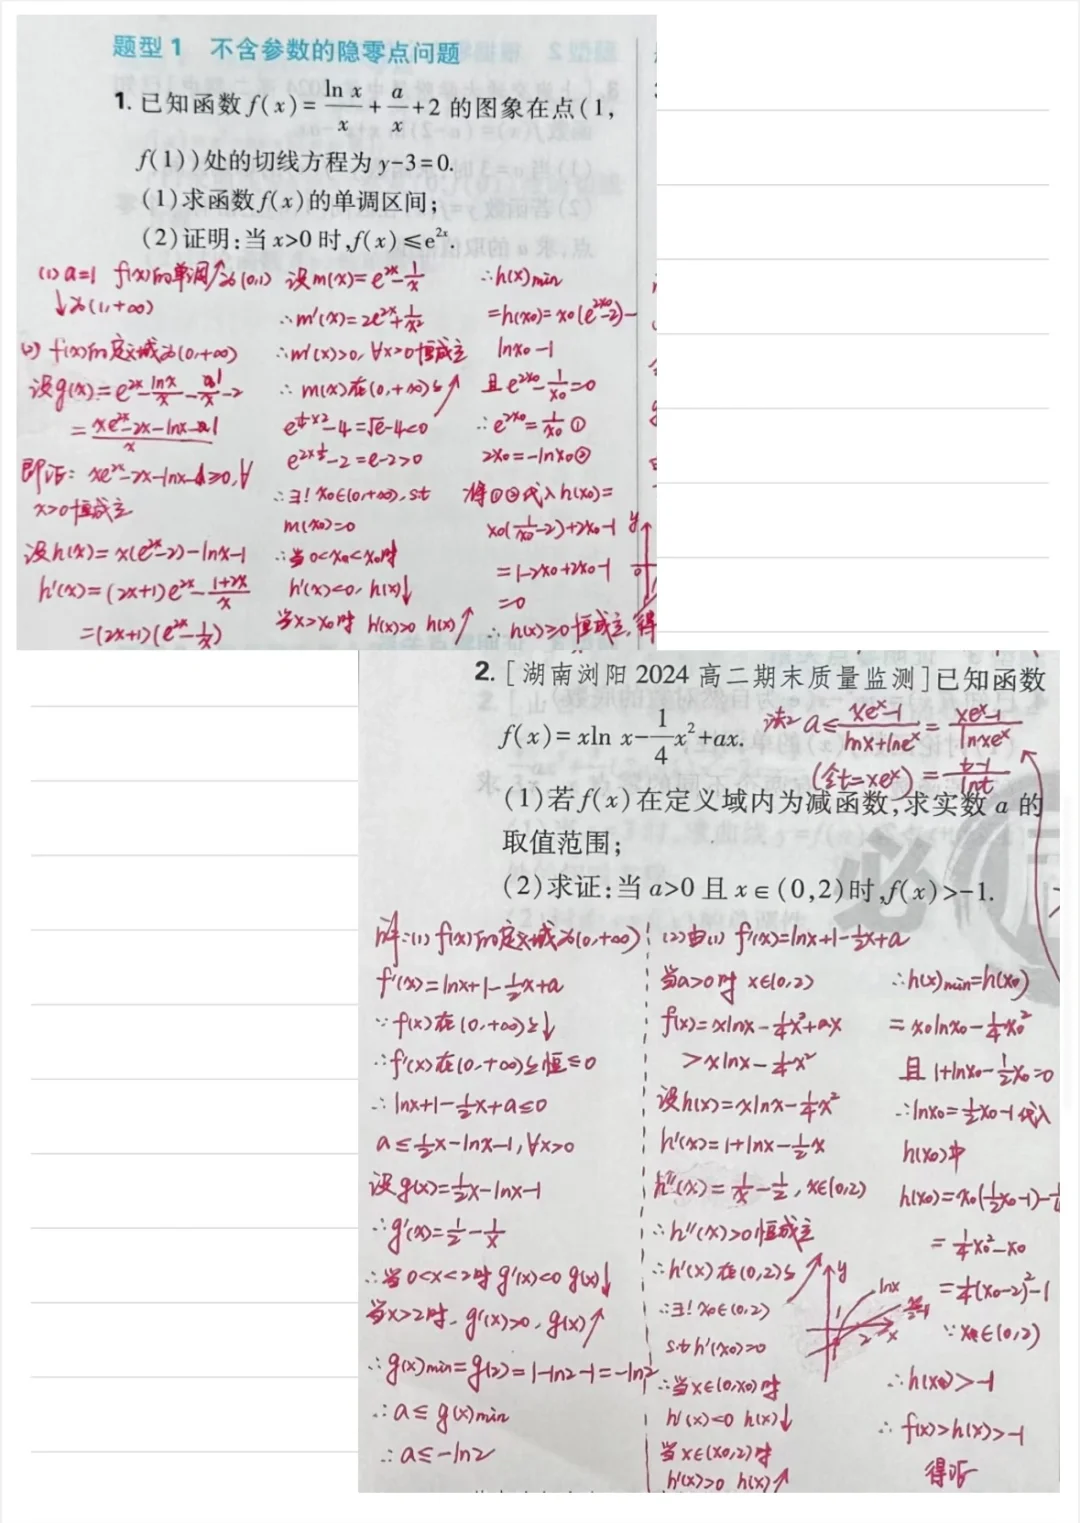 题型1 不含参数的隐零点问题
1. 已知函数f(x)=ln x/x+a/x+2的图象在点(1,
f(1))处的切线方程为y-3=0.
(1)求函数f(x)的单调区间;
(2)证明:当x>0时,f(x)≤e^{2x}.
(1) a=1 f(x)的单调↑为(0,1)
↓为(1,+∞)
(2) f(x)的定义域为(0,+∞)
设g(x)=e^{2x}-lnx/x-1/x-2
=(xe^{2x}-2x-lnx-1)/x
即证: xe^{2x}-2x-lnx-1≥0,∀
x>0恒成立
设h(x)=x(e^{2x}-2)-lnx-1
h'(x)=(2x+1)e^{2x}-(1+2x)/x
=(2x+1)(e^{2x}-1/x)
设m(x)=e^{2x}-1/x
∴m'(x)=2e^{2x}+1/x²
∴m'(x)>0, ∀x>0恒成立
∴m(x)在(0,+∞)上↑
e^{1/4×2}-4=√e-4<0
e^{2×1/2}-2=e-2>0
∴∃! x₀∈(0,+∞), st
m(x₀)=0
∴当0<x₀<x₀时
h'(x)<0, h(x)↓
当x>x₀时 h'(x)>0 h(x)↑
∴h(x)min
=h(x₀)=x₀(e^{2x₀}-2)-
lnx₀-1
且e^{2x₀}-1/x₀=0
∴e^{2x₀}=1/x₀①
2x₀=-lnx₀②
将①②代入h(x₀)=
x₀(1/x₀-2)+2x₀-1
=1-2x₀+2x₀-1
=0
∴h(x)≥0恒成立,得
y
0
2. [湖南浏阳2024高二期末质量监测]已知函数
f(x)=xln x-1/4x²+ax.
法2 a≤(xe^x-1)/(lnx+lne^x)=(xe^x-1)/(lnxe^x)
(令t=xe^x)=(t-1)/lnt
(1)若f(x)在定义域内为减函数,求实数a的
取值范围;
(2)求证:当a>0且x∈(0,2)时,f(x)>-1.
解:(1) f(x)的定义域为(0,+∞)
f'(x)=lnx+1-1/2x+a
∵f(x)在(0,+∞)上↓
∴f'(x)在(0,+∞)上恒≤0
∴lnx+1-1/2x+a≤0
a≤1/2x-lnx-1,∀x>0
设g(x)=1/2x-lnx-1
∴g'(x)=1/2-1/x
∴当0<x<2时g'(x)<0 g(x)↓
当x>2时, g'(x)>0, g(x)↑
∴g(x)min=g(2)=1-ln2-1=-ln2
∴a≤g(x)min
∴a≤-ln2
(2)由(1) f'(x)=lnx+1-1/2x+a
当a>0时 x∈(0,2)
f(x)=xlnx-1/4x²+ax
>xlnx-1/4x²
设h(x)=xlnx-1/4x²
h'(x)=1+lnx-1/2x
h''(x)=1/x-1/2, x∈(0,2)
∴h''(x)>0恒成立
∴h'(x)在(0,2)上↑
∴∃! x₀∈(0,2)
st h'(x₀)=0
∴当x∈(0,x₀)时
h'(x)<0 h(x)↓
当x∈(x₀,2)时
h'(x)>0 h(x)↑
y
lnx
1
2
x
∴h(x)min=h(x₀)
=x₀lnx₀-1/4x₀²
且1+lnx₀-1/2x₀=0
∴lnx₀=1/2x₀-1代入
h(x₀)中
h(x₀)=x₀(1/2x₀-1)-
=1/4x₀²-x₀
=1/4(x₀-2)²-1
∵x₀∈(0,2)
∴h(x₀)>-1
∴f(x)>h(x)>-1
得证